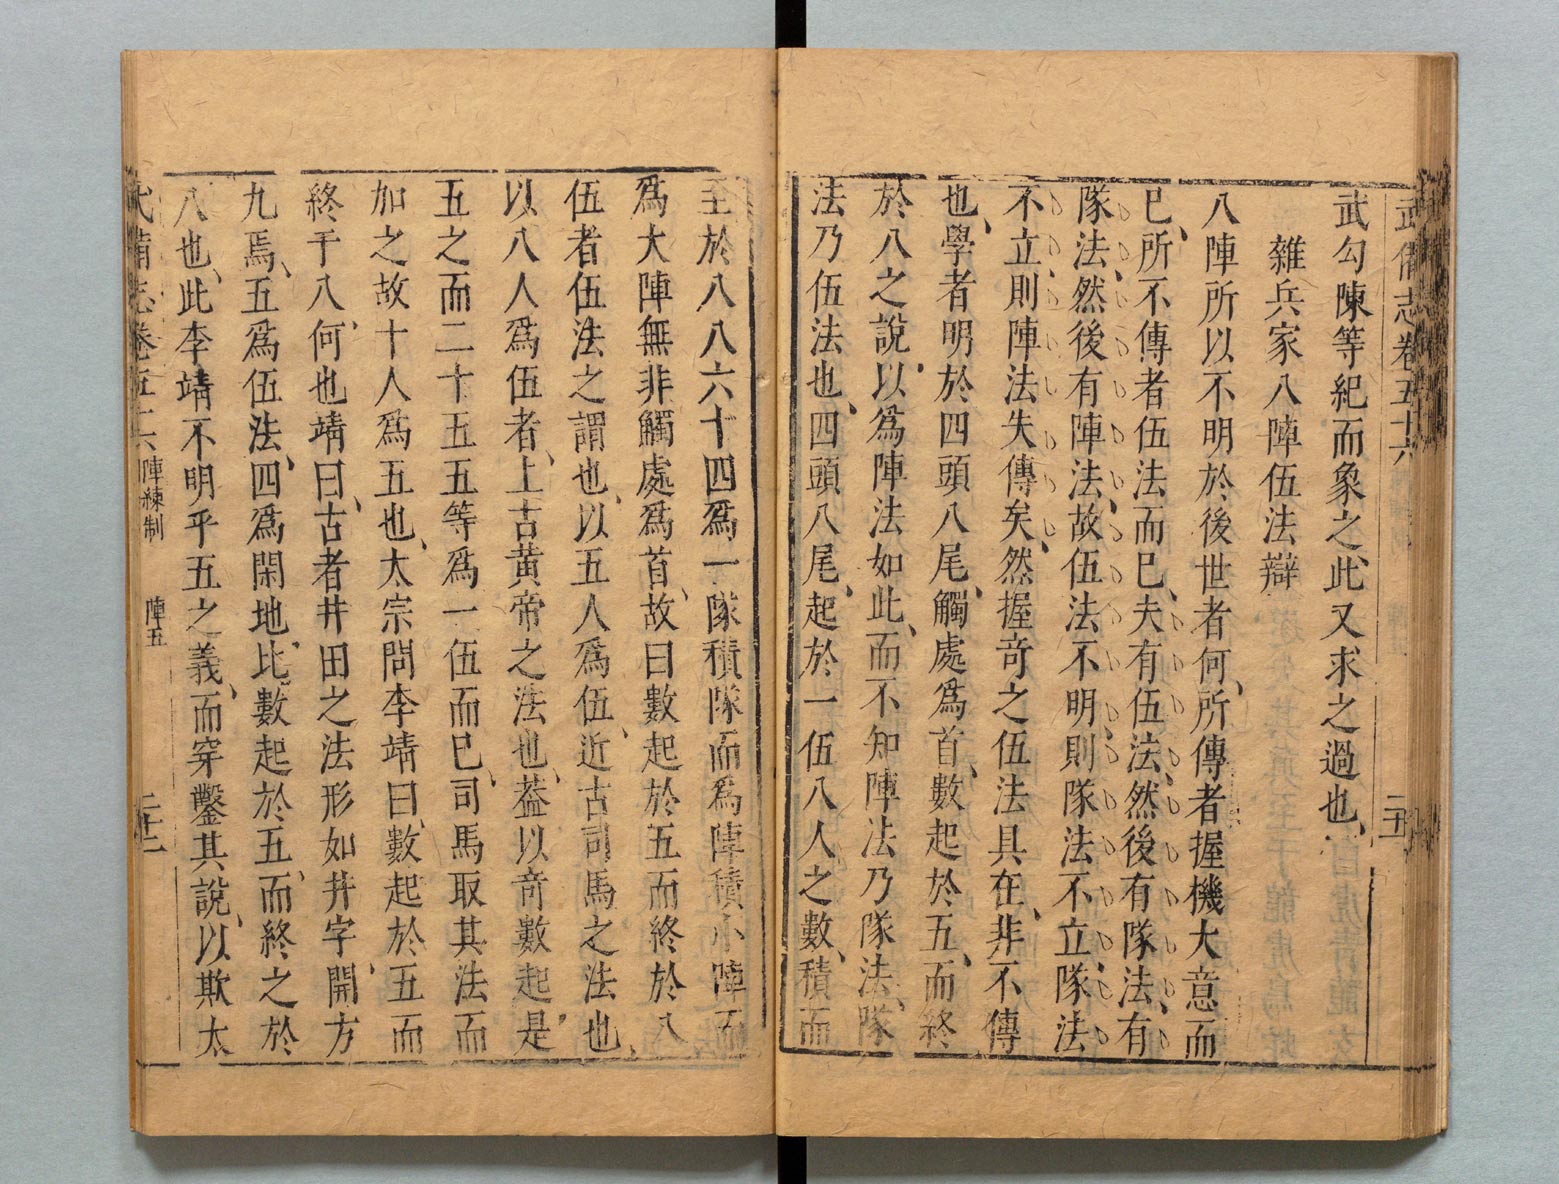 武備志卷五十六
二十五
武勾陳等紀而象之此又求之過也
雜兵家八陣伍法辯
八陣所以不明於後世者何所傳者握機大意而
已所不傳者伍法而已夫有伍法然後有隊法有
隊法然後有陣法故伍法不明則隊法不立隊法
不立則陣法失傳矣然握奇之伍法具在非不傳
也學者明於四頭八尾觸處爲首數起於五而終
於八之說以爲陣法如此而不知陣法乃隊法隊
法乃伍法也四頭八尾起於一伍八人之數積而
至於八八六十四爲一隊積隊而爲陣積小陣而
爲大陣無非觸處爲首故曰數起於五而終於八
伍者伍法之謂也以五人爲伍近古司馬之法也
以八人爲伍者上古黃帝之法也葢以奇數起是
五之而二十五五等爲一伍而已司馬取其法而
加之故十人爲五也太宗問李靖曰數起於五而
終于八何也靖曰古者井田之法形如井字開方
九焉五爲伍法四爲閑地比數起於五而終之於
八也此李靖不明乎五之義而穿鑿其說以欺太
武備志卷五十六 陣練制 陣五